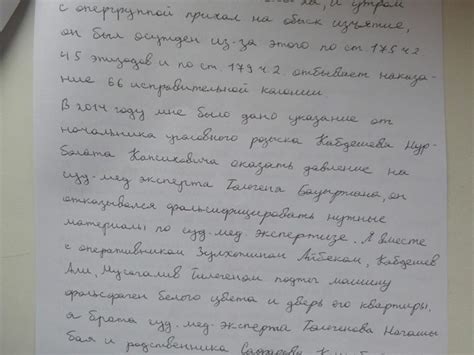 ха, и утром
с опергруппой приехал на обыск изъятие,
он был осужден из-за этого по ст. 175 ч 2
45 эпизодов и по ст. 179 ч 2. отбывает наказа-
ние 66 исправительной колонии
В 2014 году мне было дано указание от
начальника уголовного розыска Кабдешева Нур-
болата Капсиховича оказать давление на
суд. мед эксперта Толегена Бауыржана, он
отказывался фальсифицировать нужные
материалы по суд. мед. экспертизе. Я вместе
с оперативником Айбеком, Кабдешев
Али, Мусагалив Тилегеном машину
белого цвета и дверь его квартиры,
а брата суд. мед. эксперта Толегенова
бая и родственника